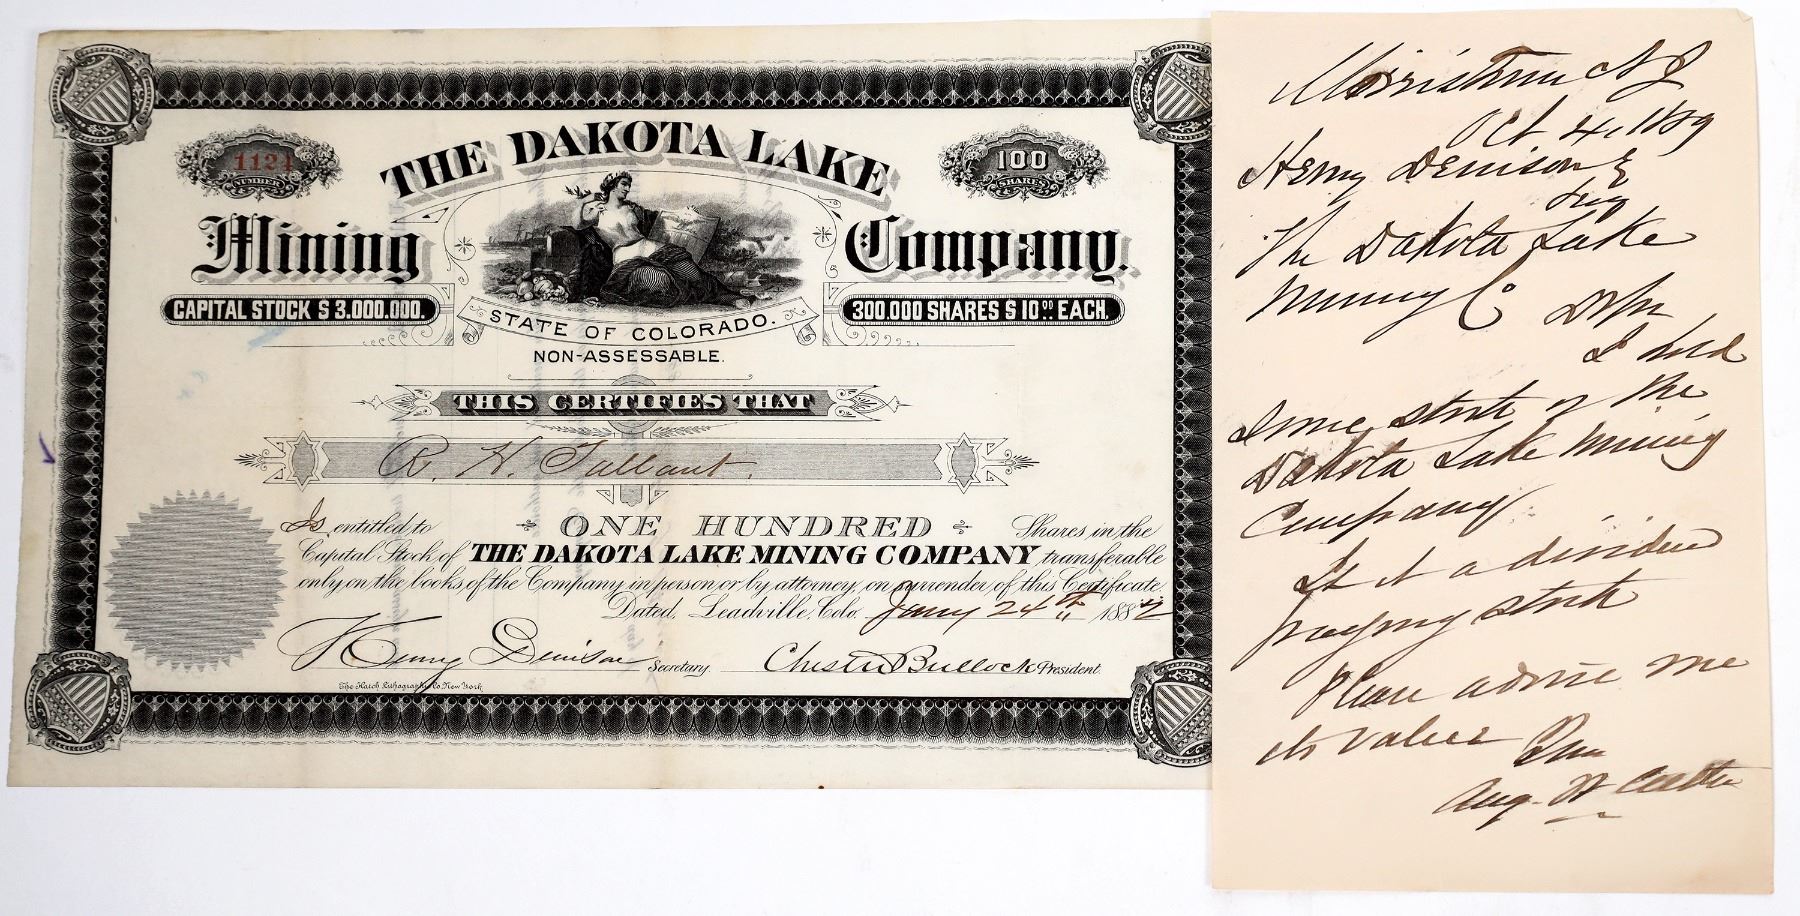 1124
NUMBER
THE DAKOTA LAKE
100
SHARES
Mining Company.
CAPITAL STOCK $ 3.000.000.
300.000 SHARES $ 10.00 EACH.
STATE OF COLORADO.
NON-ASSESSABLE.
THIS CERTIFIES THAT
R. H. Tallant.
Is entitled to ONE HUNDRED Shares in the
Capital Stock of THE DAKOTA LAKE MINING COMPANY transferable
only on the books of the Company in person or by attorney, on surrender of this Certificate.
Dated, Leadville, Colo. Jany 24th 1882
Henry Denison Secretary. Chester Bullock President.
The Hatch Lithographic Co. New York.
Morristown NJ
Oct 4, 1889
Henry Denison
The Dakota Lake
Mining Co
I hold
some stock of the
Dakota Lake Mining
Company.
Is it a dividend
paying stock
Please advise me
its value
Aug. W